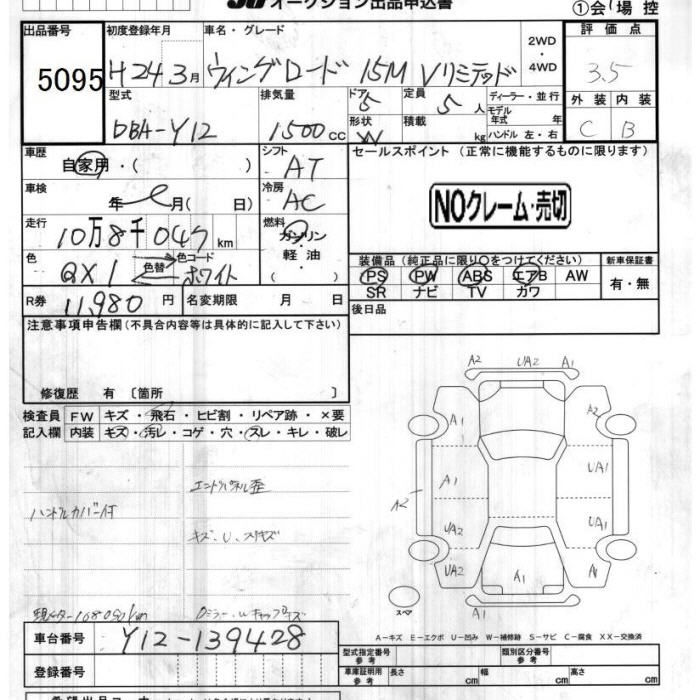 オークション出品申込書
①会場控
出品番号
5095
初度登録年月
H24 3月
車名・グレード
ウィングロード 15M Vリミテッド
2WD
・
4WD
評価点
3.5
型式
DBA-Y12
排気量
1500cc
ドア
5
形状
W
定員
5人
積載
kg
ディーラー・並行
モデル年式 年
ハンドル 左・右
外装
C
内装
B
車歴
自家用・( )
シフト
AT
セールスポイント (正常に機能するものに限ります)
NOクレーム・売切
車検
年 月( 日)
冷房
AC
走行
10万8千047km
燃料
ガソリン
軽油
( )
色
QX1
色替
色コード
ホワイト
装備品 (純正品に限り○をつけてください)
PS PW ABS エアB AW
SR ナビ TV カワ
新車保証書
有・無
R券
11,980円
名変期限 月 日
後日品
注意事項申告欄 (不具合内容等は具体的に記入して下さい)
修復歴 有〔箇所 〕
検査員記入欄
FW キズ・飛石・ヒビ割・リペア跡・×要
内装 キズ・汚レ・コゲ・穴・スレ・キレ・破レ
エンドパネル歪
ハンドルカバー付
キズ、U、スリキズ
A2 UA2 A1
A1
A2
A1
UA1
A2
UA2
UA1
UA2
A1
A1
スペア
A1
A-キズ E-エクボ U-凹み W-補修跡 S-サビ C-腐食 XX-交換済
車台番号
Y12-139428
登録番号
型式指定番号
参考
類別区分番号
参考
車庫証明用
参考
長さ cm
幅 cm
高さ cm